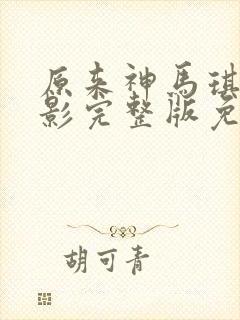 原来神馬琪
影完整版免
胡可青